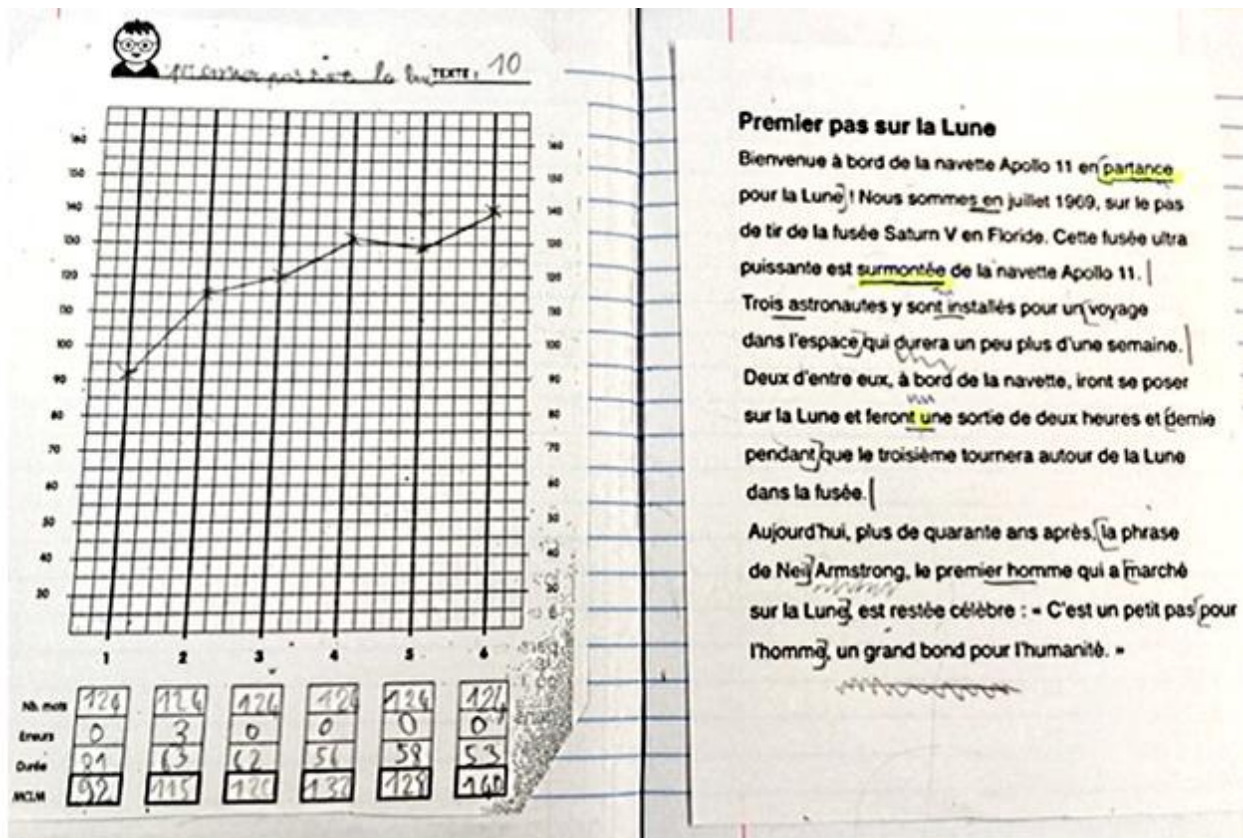 premier pas sur la TEXTE : 10
160 160
150 150
140 140
130 130
120 120
110 110
100 100
90 90
80 80
70 70
60 60
50 50
40 40
30
1 2 3 4 5 6
Nb. mots 124 124 124 124 124 124
Erreurs 0 3 0 0 0 0
Durée 81 63 62 56 58 53
MCLM 92 115 120 132 128 140
Premier pas sur la Lune
Bienvenue à bord de la navette Apollo 11 en partance
pour la Lune ! Nous sommes en juillet 1969, sur le pas
de tir de la fusée Saturn V en Floride. Cette fusée ultra
puissante est surmontée de la navette Apollo 11.
Trois astronautes y sont installés pour un voyage
dans l'espace qui durera un peu plus d'une semaine.
Deux d'entre eux, à bord de la navette, iront se poser
sur la Lune et feront une sortie de deux heures et demie
pendant que le troisième tournera autour de la Lune
dans la fusée.
Aujourd'hui, plus de quarante ans après, la phrase
de Neil Armstrong, le premier homme qui a marché
sur la Lune, est restée célèbre : « C'est un petit pas pour
l'homme, un grand bond pour l'humanité. »